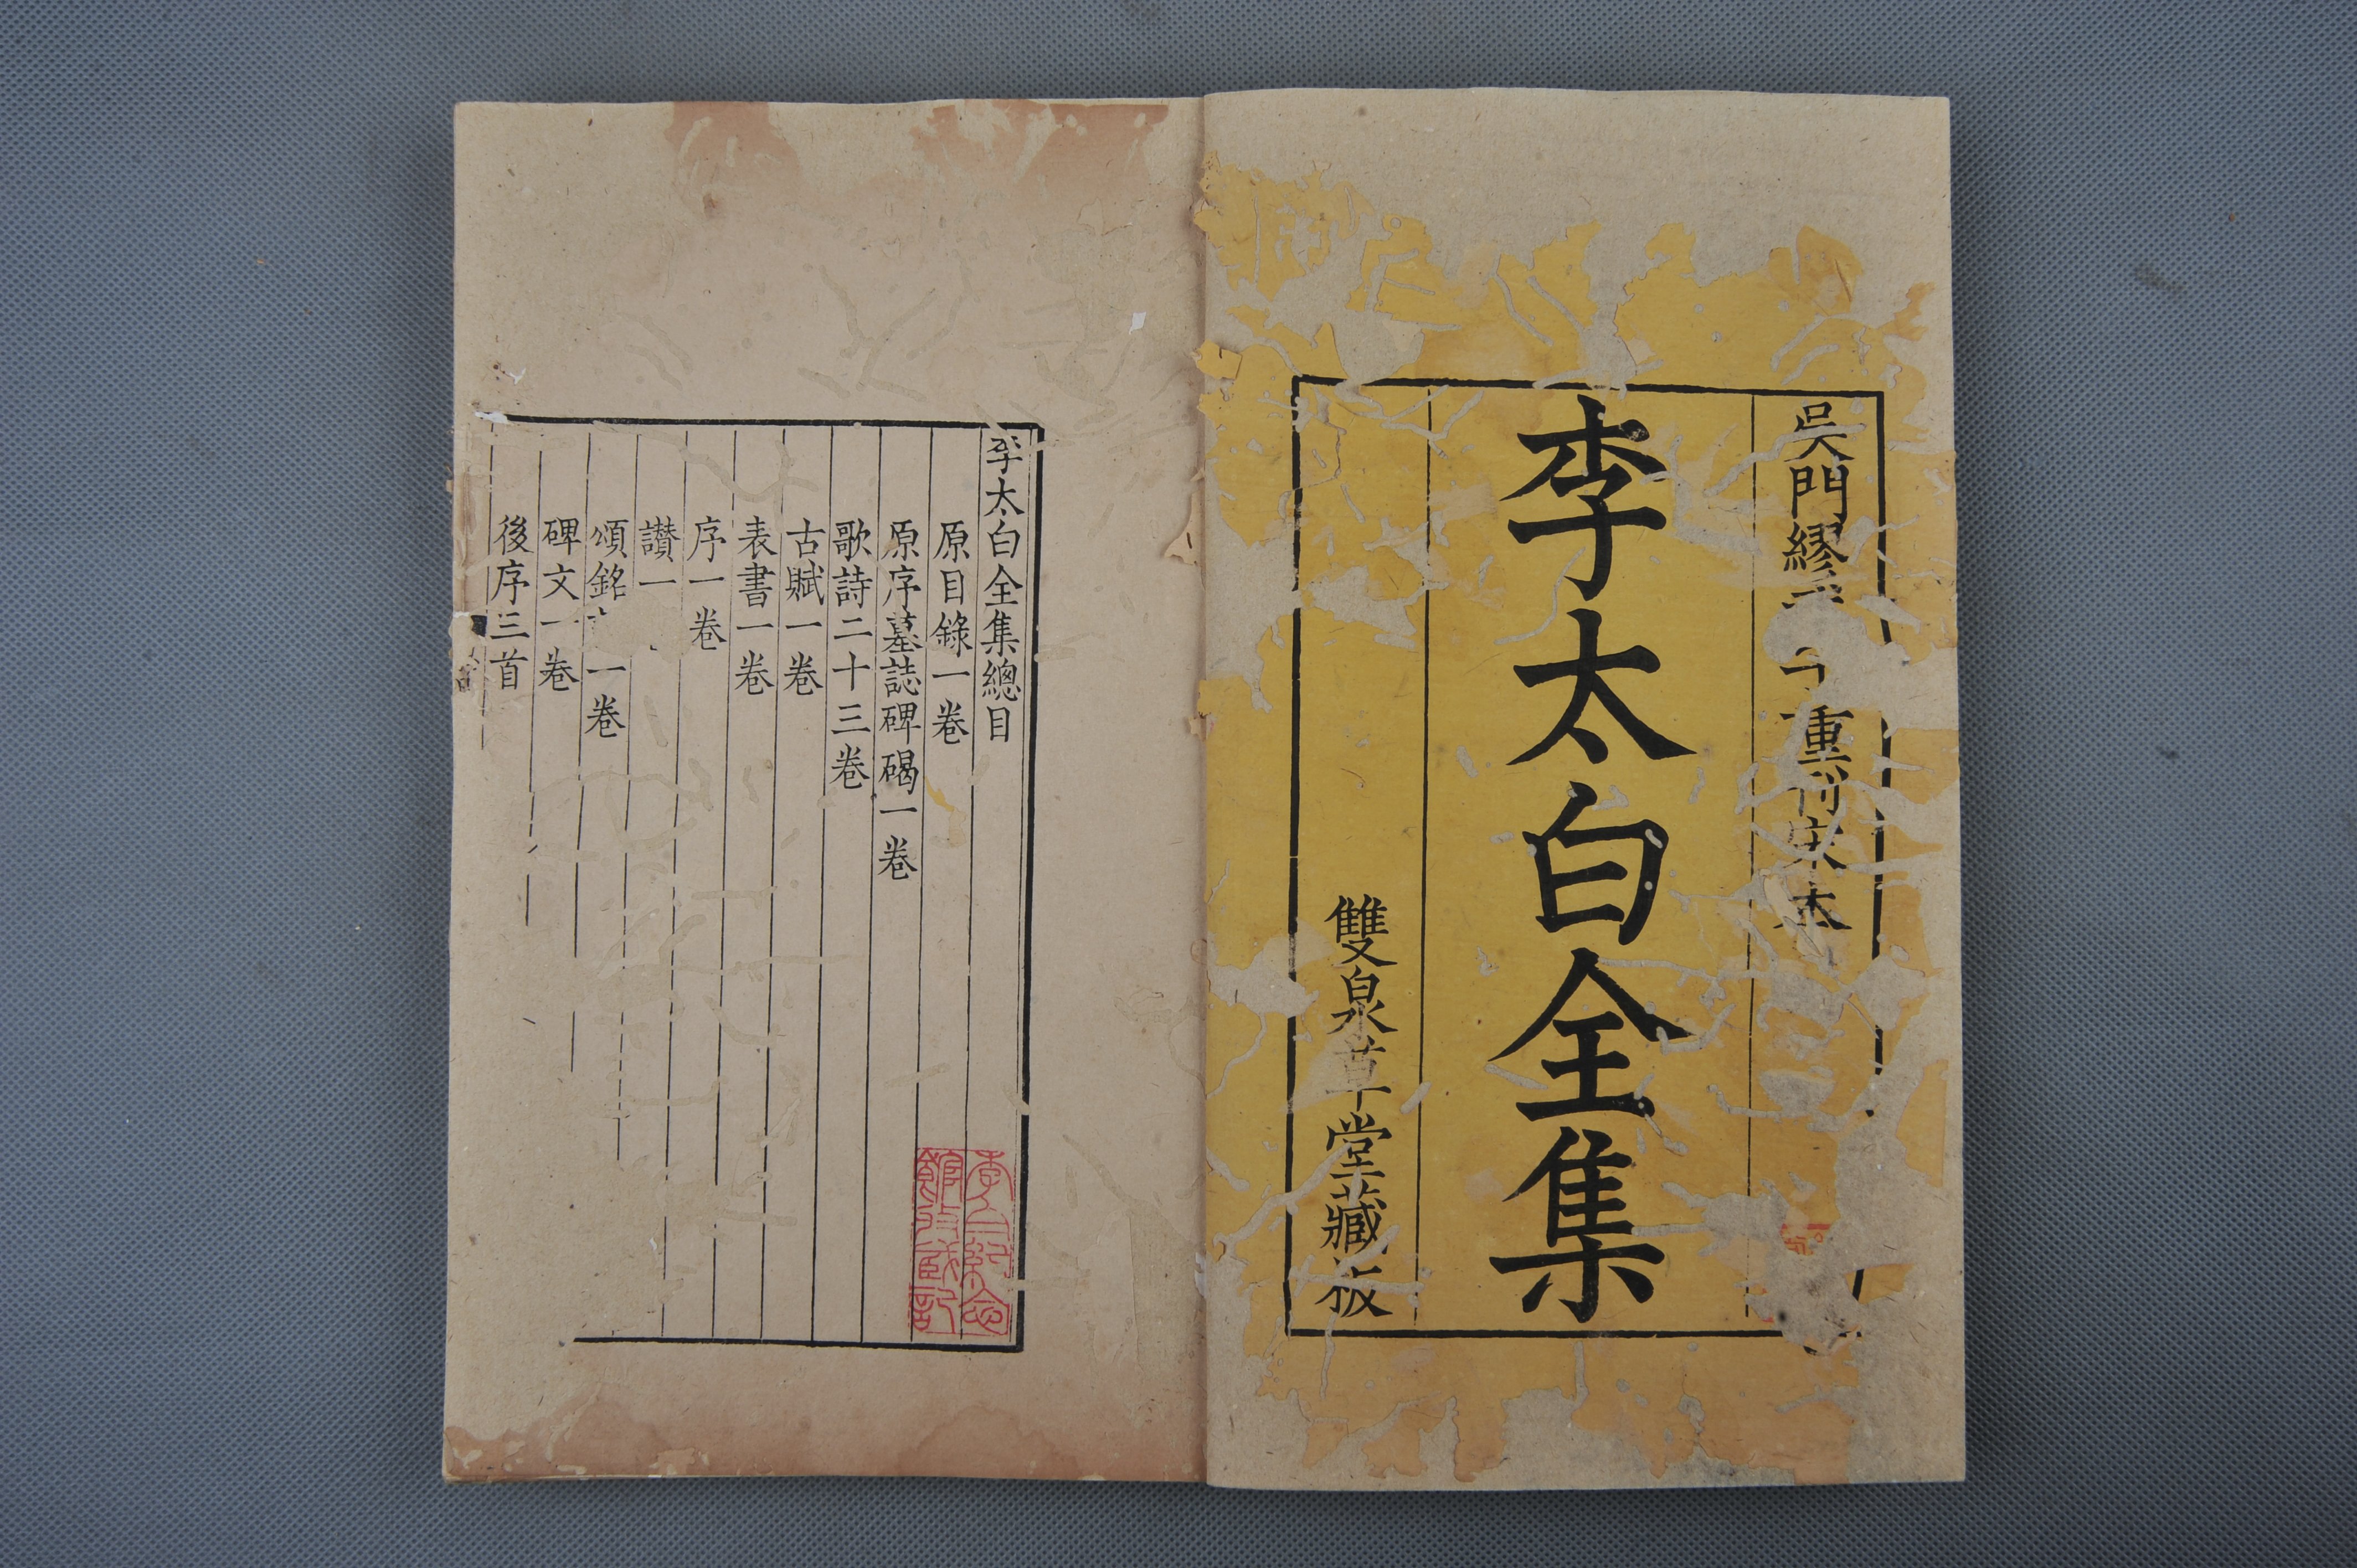 吳門繆 重 宋本
李太白全集
雙泉草堂藏板
李太白全集總目
原目錄一卷
原序墓誌碑碣一卷
歌詩二十三卷
古賦一卷
表書一卷
序一卷
讃一
頌銘 一卷
碑文一卷
後序三首
李白紀念
館收藏記